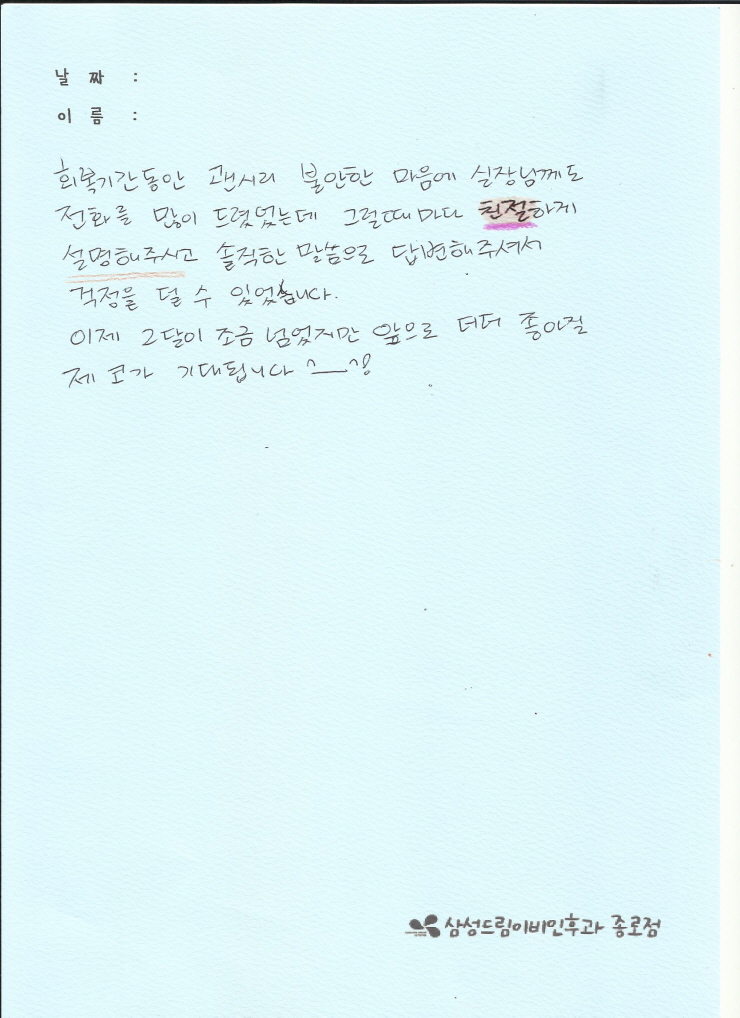 날 짜 :
이 름 :
회복기간동안 괜시리 불안한 마음에 실장님께도
전화를 많이 드렸었는데 그럴때마다 친절하게
설명해주시고 솔직한 말씀으로 답변해주셔서
걱정을 덜 수 있었습니다.
이제 2달이 조금 넘었지만 앞으로 더더 좋아질
제 코가 기대됩니다 ^__^!
삼성드림이비인후과 종로점